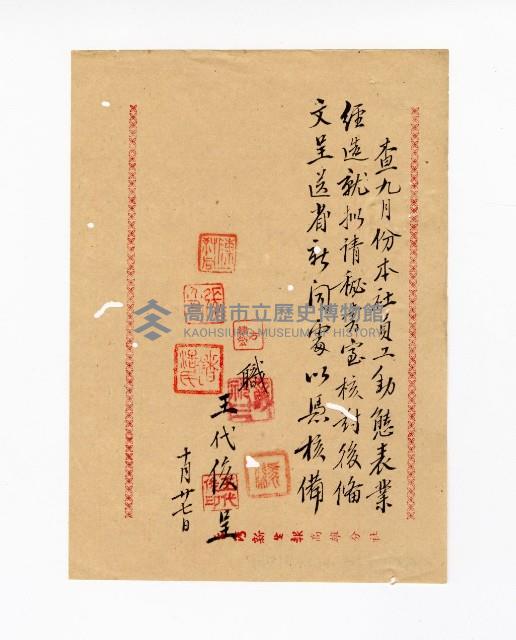 查九月份本社員工動態表業
經造就拟請秘書室核封後備
文呈送省新聞處以憑核備
職
王代俊呈
十月廿七日
新生報高雄分社
高雄市立歷史博物館
KAOHSIUNG MUSEUM OF HISTORY